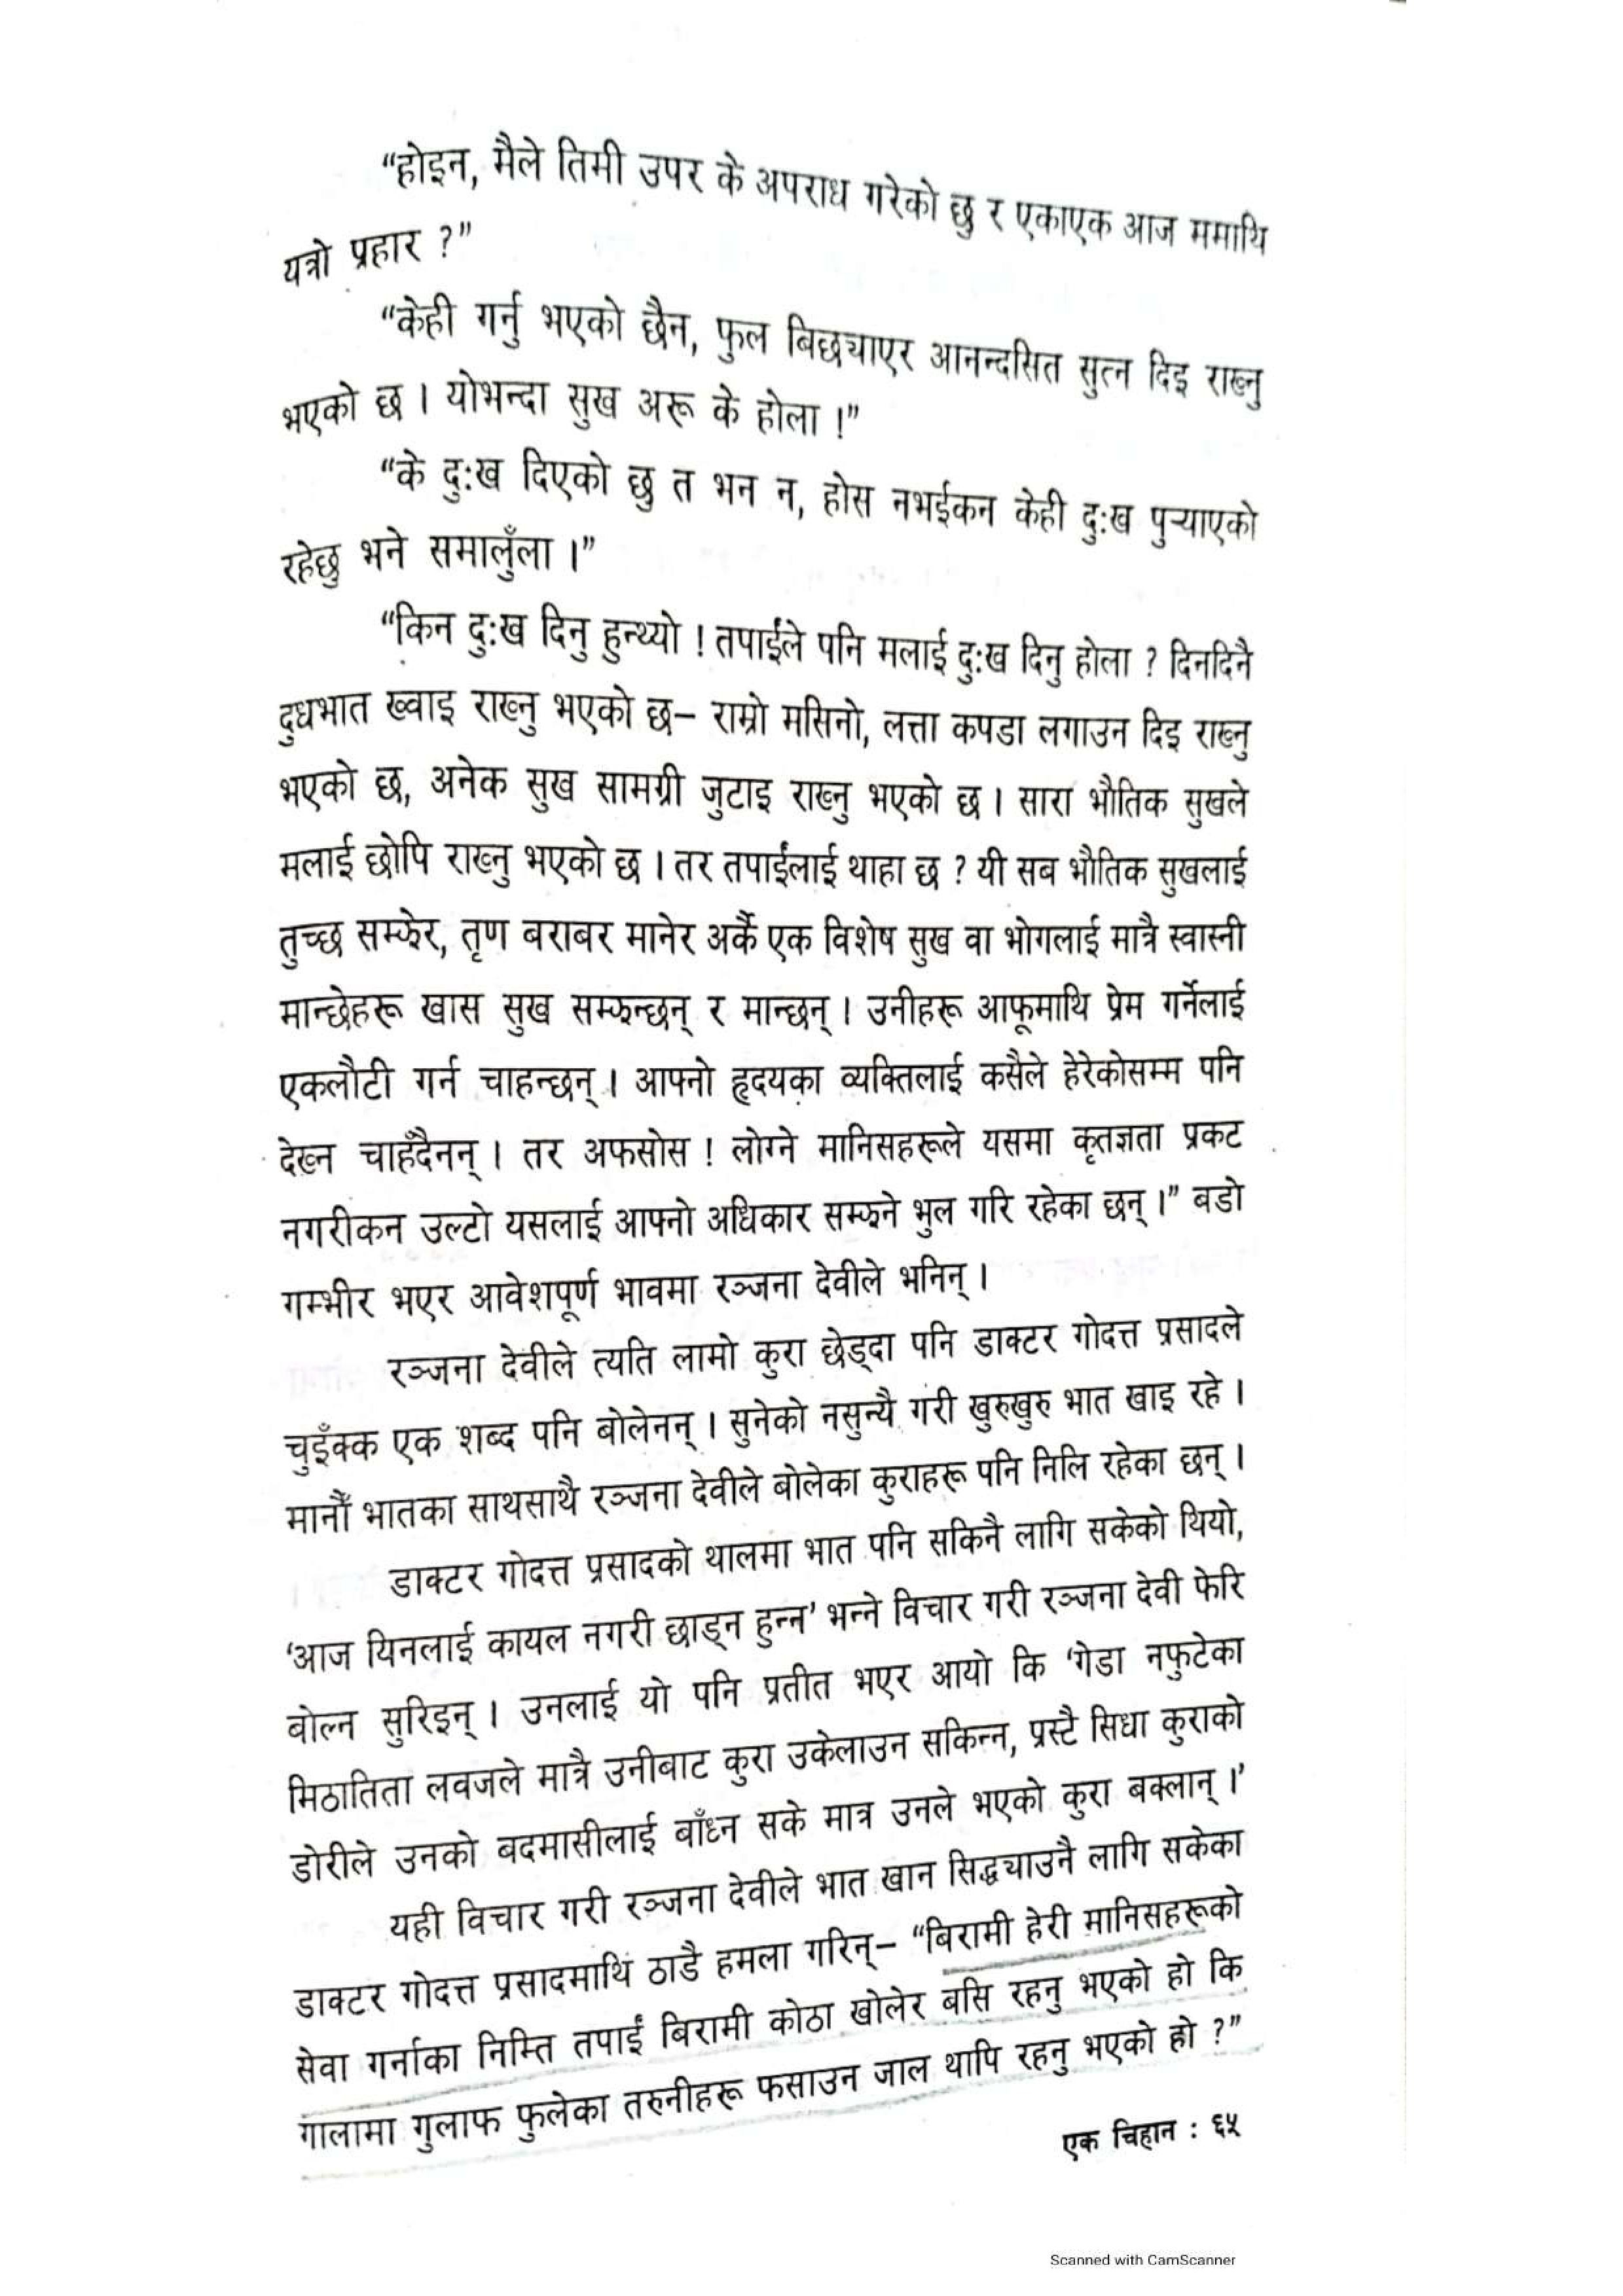 “होइन, मैले तिमी उपर के अपराध गरेको छु र एकाएक आज ममाथि
यत्रो प्रहार ?”
“केही गर्नु भएको छैन, फुल बिछ्याएर आनन्दसित सुत्न दिइ राख्नु
भएको छ । योभन्दा सुख अरू के होला !”
“के दुःख दिएको छु त भन न, होस नभईकन केही दुःख पुऱ्याएको
रहेछु भने समालुँला ।”
“किन दुःख दिनु हुन्थ्यो ! तपाईंले पनि मलाई दुःख दिनु होला ? दिनदिनै
दुधभात ख्वाइ राख्नु भएको छ– राम्रो मसिनो, लत्ता कपडा लगाउन दिइ राख्नु
भएको छ, अनेक सुख सामग्री जुटाइ राख्नु भएको छ । सारा भौतिक सुखले
मलाई छोपि राख्नु भएको छ । तर तपाईंलाई थाहा छ ? यी सब भौतिक सुखलाई
तुच्छ सम्झेर, तृण बराबर मानेर अर्कै एक विशेष सुख वा भोगलाई मात्रै स्वास्नी
मान्छेहरू खास सुख सम्झन्छन् र मान्छन् । उनीहरू आफूमाथि प्रेम गर्नेलाई
एकलौटी गर्न चाहन्छन् । आफ्नो हृदयका व्यक्तिलाई कसैले हेरेकोसम्म पनि
देख्न चाहँदैनन् । तर अफसोस ! लोग्ने मानिसहरूले यसमा कृतज्ञता प्रकट
नगरीकन उल्टो यसलाई आफ्नो अधिकार सम्झने भुल गरि रहेका छन् ।” बडो
गम्भीर भएर आवेशपूर्ण भावमा रञ्जना देवीले भनिन् ।
रञ्जना देवीले त्यति लामो कुरा छेड्दा पनि डाक्टर गोदत्त प्रसादले
चुइँक्क एक शब्द पनि बोलेनन् । सुनेको नसुन्यै गरी खुरुखुरु भात खाइ रहे ।
मानौँ भातका साथसाथै रञ्जना देवीले बोलेका कुराहरू पनि निलि रहेका छन् ।
डाक्टर गोदत्त प्रसादको थालमा भात पनि सकिनै लागि सकेको थियो,
‘आज यिनलाई कायल नगरी छाड्न हुन्न’ भन्ने विचार गरी रञ्जना देवी फेरि
बोल्न सुरिइन् । उनलाई यो पनि प्रतीत भएर आयो कि ‘गेडा नफुटेका
मिठातिता लवजले मात्रै उनीबाट कुरा उकेलाउन सकिन्न, प्रस्टै सिधा कुराको
डोरीले उनको बदमासीलाई बाँध्न सके मात्र उनले भएको कुरा बक्लान् ।’
यही विचार गरी रञ्जना देवीले भात खान सिद्ध्याउनै लागि सकेका
डाक्टर गोदत्त प्रसादमाथि ठाडै हमला गरिन्– “बिरामी हेरी मानिसहरूको
सेवा गर्नाका निम्ति तपाईं बिरामी कोठा खोलेर बसि रहनु भएको हो कि
गालामा गुलाफ फुलेका तरुनीहरू फसाउन जाल थापि रहनु भएको हो ?”
एक चिहान : ६५
Scanned with CamScanner